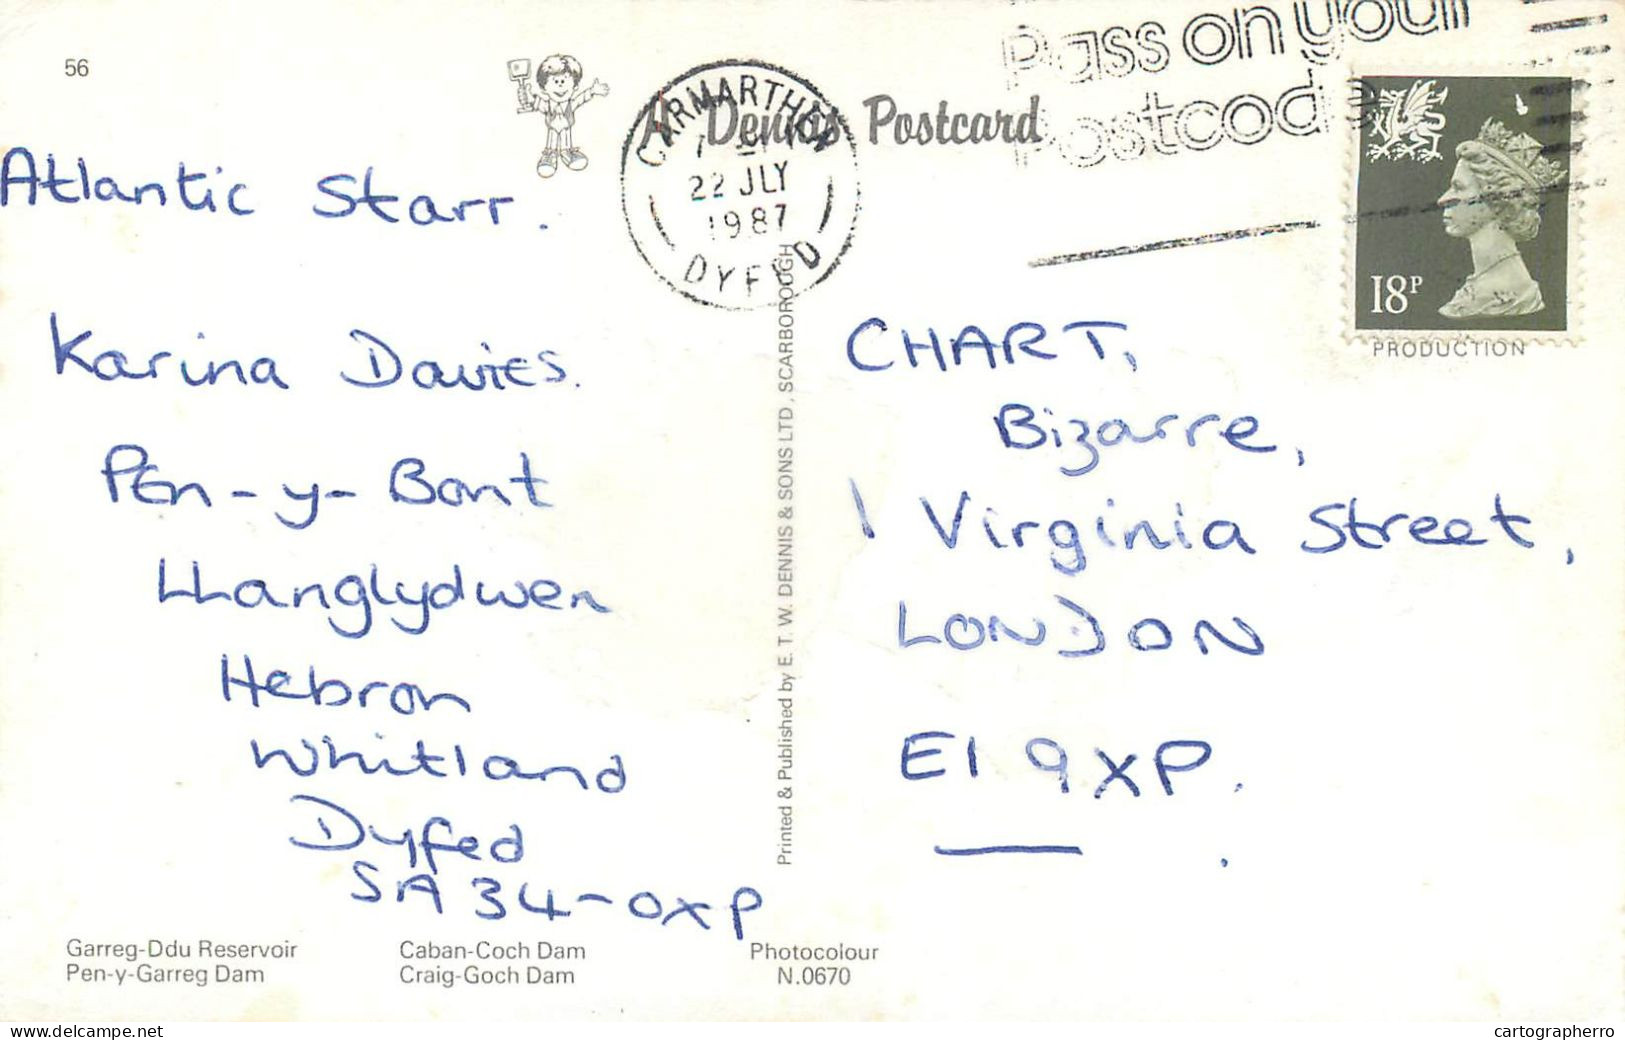 56
A Dennis Postcard
Pass on your
Postcode
CARMARTHEN
22 JLY
1987
DYFED
18P
PRODUCTION
Atlantic Starr.
Karina Davies.
Pen-y-Bont
Llanglydwen
Hebron
Whitland
Dyfed
SA34-OXP
Printed & Published by E. T. W. DENNIS & SONS LTD, SCARBOROUGH
CHART,
Bizarre,
1 Virginia Street,
LONDON
E1 9XP.
Garreg-Ddu Reservoir
Pen-y-Garreg Dam
Caban-Coch Dam
Craig-Goch Dam
Photocolour
N.0670
delcampe.net
cartographerro